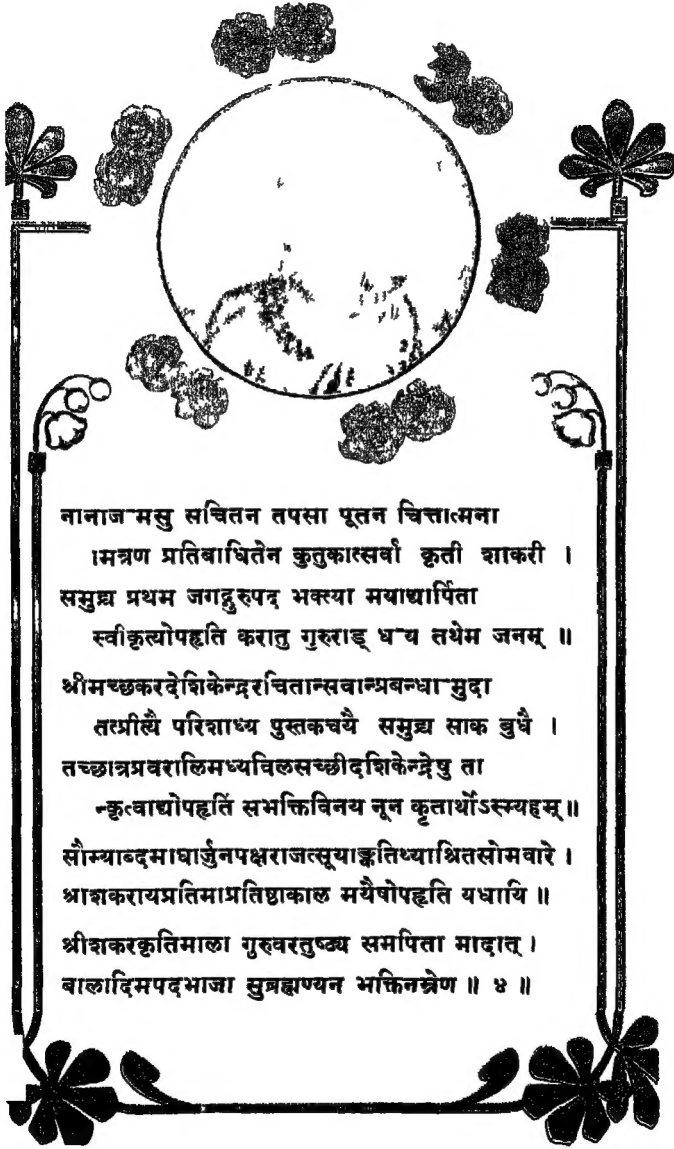 नानाज मसु सचितन तपसा पूतन चित्तात्मना
।मत्रण प्रतिबाधितेन कुतुकात्सर्वा कृती शाकरी ।
समुद्य प्रथम जगद्गुरुपद भक्त्या मयाद्यार्पिता
स्वीकृत्योपहृति करातु गुरुराड् ध य तथेम जनम् ॥
श्रीमच्छकरदेशिकेन्द्ररचितान्सवान्प्रबन्धा मुदा
तत्प्रीत्यै परिशाध्य पुस्तकचयै समुद्य साक बुधै ।
तच्छात्रप्रवरालिमध्यविलसच्छीदशिकेन्द्रेषु ता
न्कृत्वाद्योपहृतिं सभक्तिविनय नून कृतार्थोऽस्म्यहम् ॥
सौम्याब्दमाघार्जुनपक्षराजत्सूयाङ्कतिथ्याश्रितसोमवारे ।
श्राशकरायप्रतिमाप्रतिष्ठाकाल मयैषोपहृति यधायि ॥
श्रीशकरकृतिमाला गुरुवरतुष्ट्य समपिता मादात् ।
बालादिमपदभाजा सुब्रह्मण्यन भक्तिनम्रेण ॥ ४ ॥